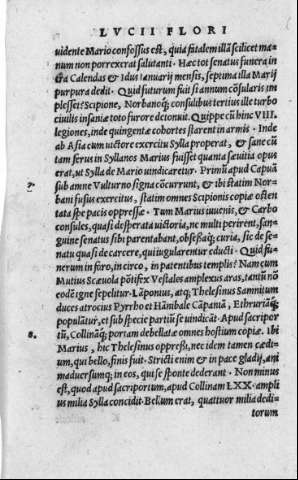 LVCII FLORI
uidente Mario confossus est, quia fatalem illā scilicet ma-
num non porrexerat salutanti. Hæc tot senatus funera in
tra Calendas & Idus Ianuarij mensis, septima illa Marij
purpura dedit. Quid futurum fuit si annum cōsularis im
plesset? Scipione, Norbanoq; consulibus tertius ille turbo
ciuilis insaniæ toto furore detonuit. Quippe cū hinc VIII.
legiones, inde quingentæ cohortes starent in armis. Inde
ab Asia cum uictore exercitu Sylla properat, & sane cū
tam ferus in Syllanos Marius fuisset quanta sæuitia opus
erat, ut Sylla de Mario uindicaretur. Primū apud Capuā
7. sub amne Vulturno signa cōcurrunt, & ibi statim Nor-
bani fusus exercitus, statim omnes Scipionis copiæ osten
tata spe pacis oppressæ. Tum Marius iuuenis, & Carbo
consules, quasi desperata uictoria, ne multi perirent, san-
guine senatus sibi parentabant, obsessaq; curia, sic de se-
natu quasi de carcere, qui iugularentur educti. Quid fu-
nerum in foro, in circo, in patentibus templis? Nam cum
Mutius Scæuola pōtifex Vestales amplexus aras, tantū nō
eodē igne sepelitur. Lāponius, atq; Thelesinus Samnitium
duces atrocius Pyrrho et Hānibale Cāpaniā, Ethruriāq;
populātur, et sub specie partiū se uindicāt. Apud sacripor
8. tū, Collināq; portam debellatæ omnes hostium copiæ. Ibi
Marius, hic Thelesinus oppressi, nec idem tamen cædi-
um, qui bello, finis fuit. Stricti enim & in pace gladij, ani
maduersumq; in eos, qui se sponte dederant. Non minus
est, quod apud sacriportum, apud Collinam LXX. ampli
us milia Sylla concidit. Bellum erat, quattuor milia dedi-
torum